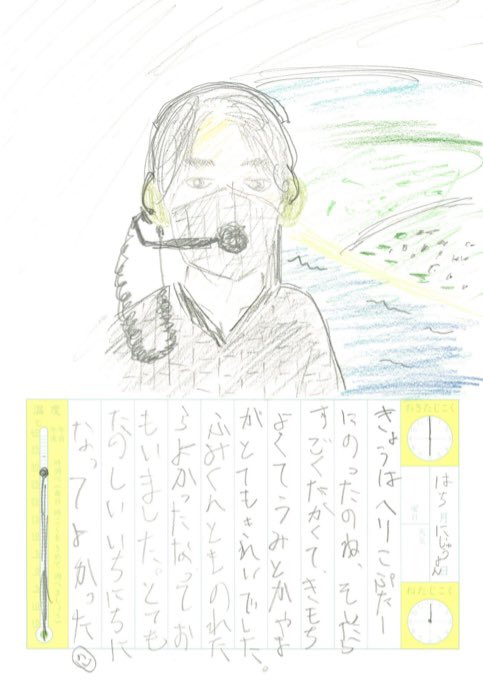 おきたじこく
はち月にじゅうよん日
ねたじこく
きょうは へりこぷたー
にのったのね、そしたら
すごくたかくて、きもち
よくてうみとかやま
がとてもきれいでした。
ふみくんともものれた
らよかったなっておも
もいました。とても
たのしいいちにちに
なってよかった
温度